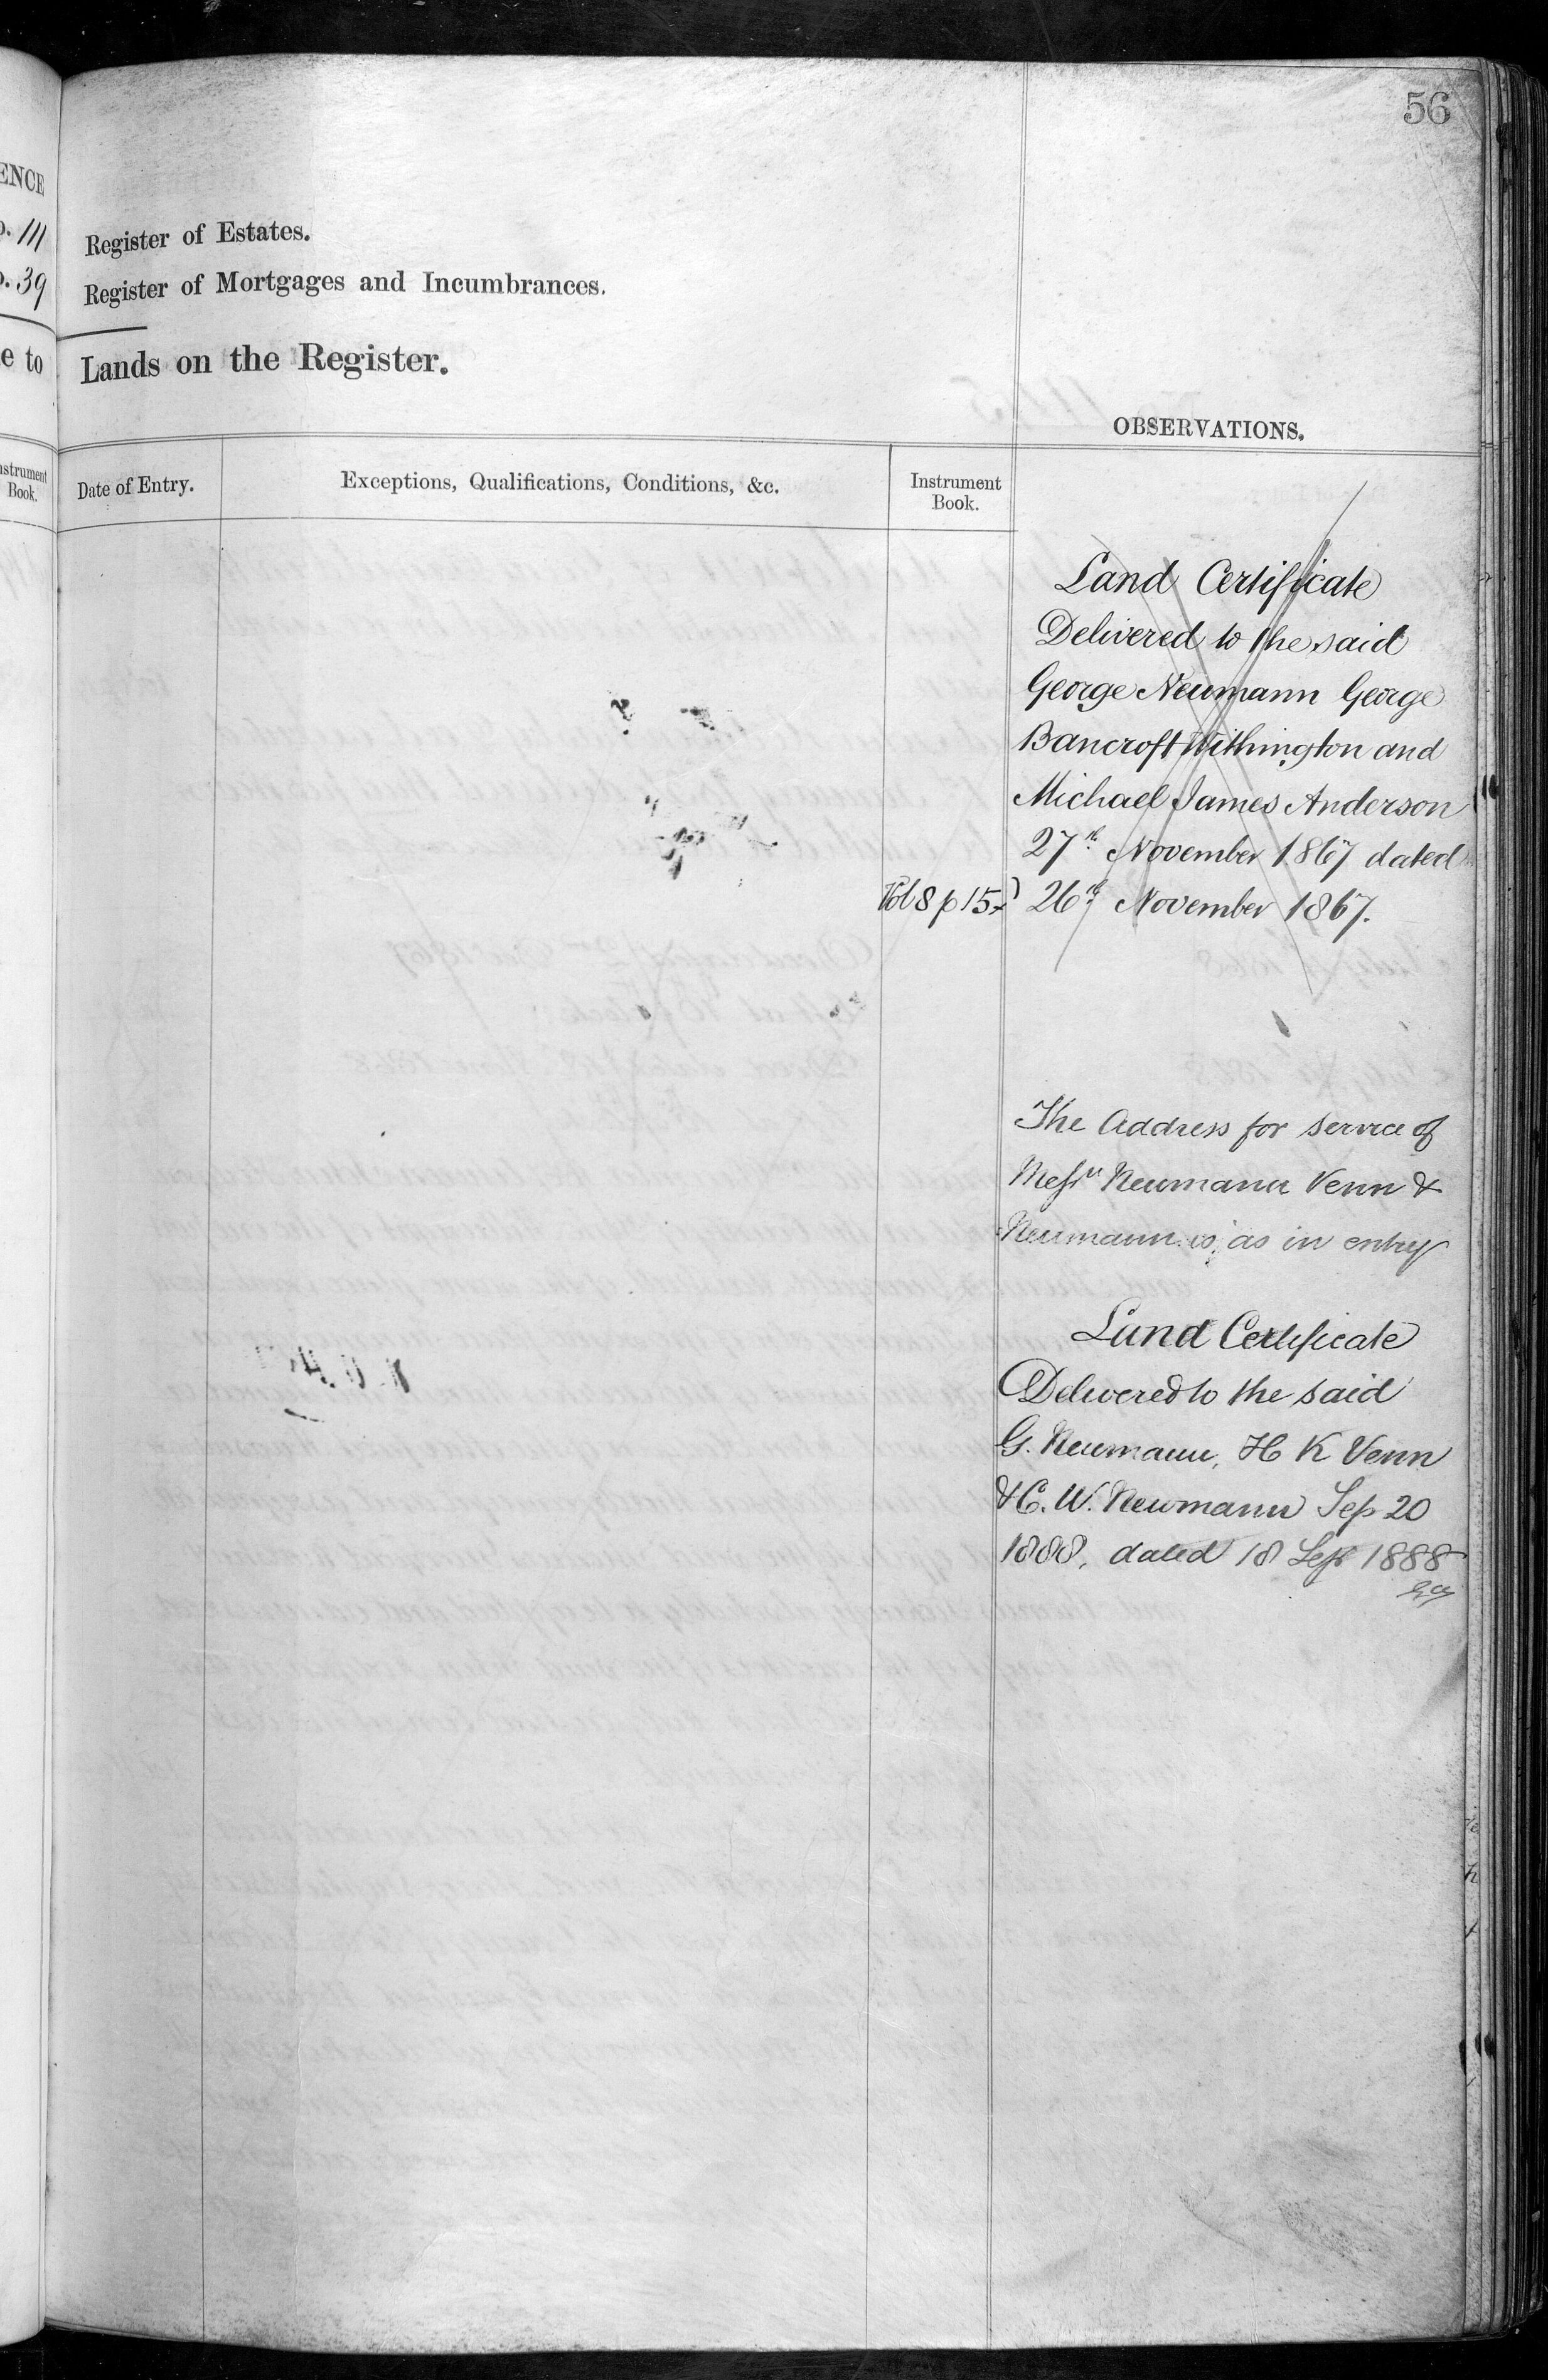 56
ENCE
. 111
. 39
e to
Register of Estates.
Register of Mortgages and Incumbrances.
Lands on the Register.
OBSERVATIONS.
Instrument
Book.
Date of Entry.
Exceptions, Qualifications, Conditions, &c.
Instrument
Book.
Land Certificate
Delivered to the said
George Neumann George
Bancroft Withington and
Michael James Anderson
27th November 1867 dated
Vol 8 p 15
26th November 1867.
The Address for service of
Messrs Neumann Venn &
Neumann is as in entry
Land Certificate
Delivered to the said
G. Neumann, H K Venn
& C. W. Neumann Sep 20
1888, dated 18 Sept 1888